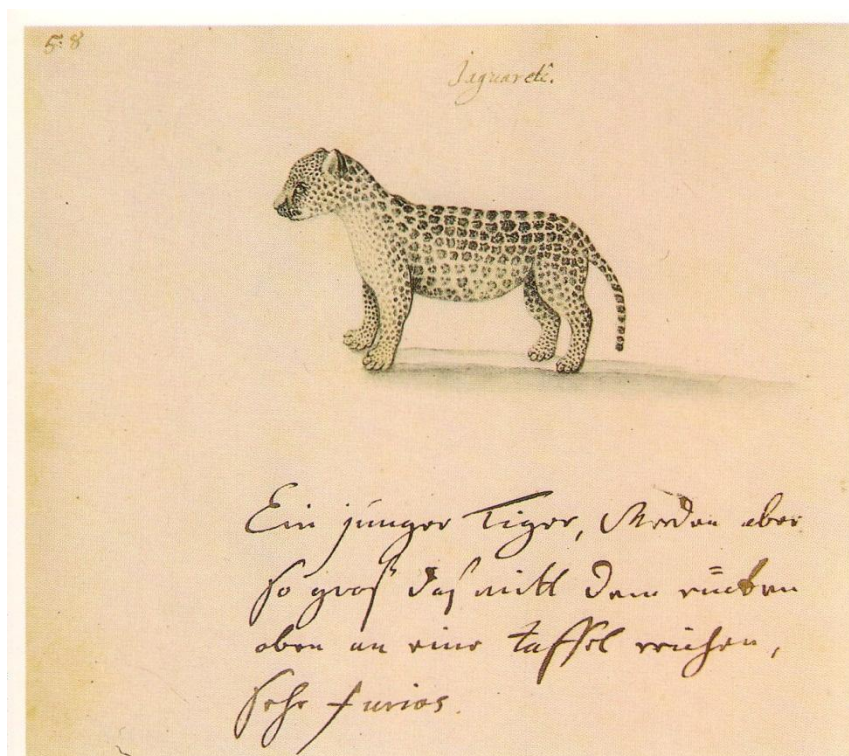 5: 8
Jaguarete.
Ein junger Tiger, Werden aber
so groß daß mitt dem rücken
oben an eine taffel reichen,
sehr furios.